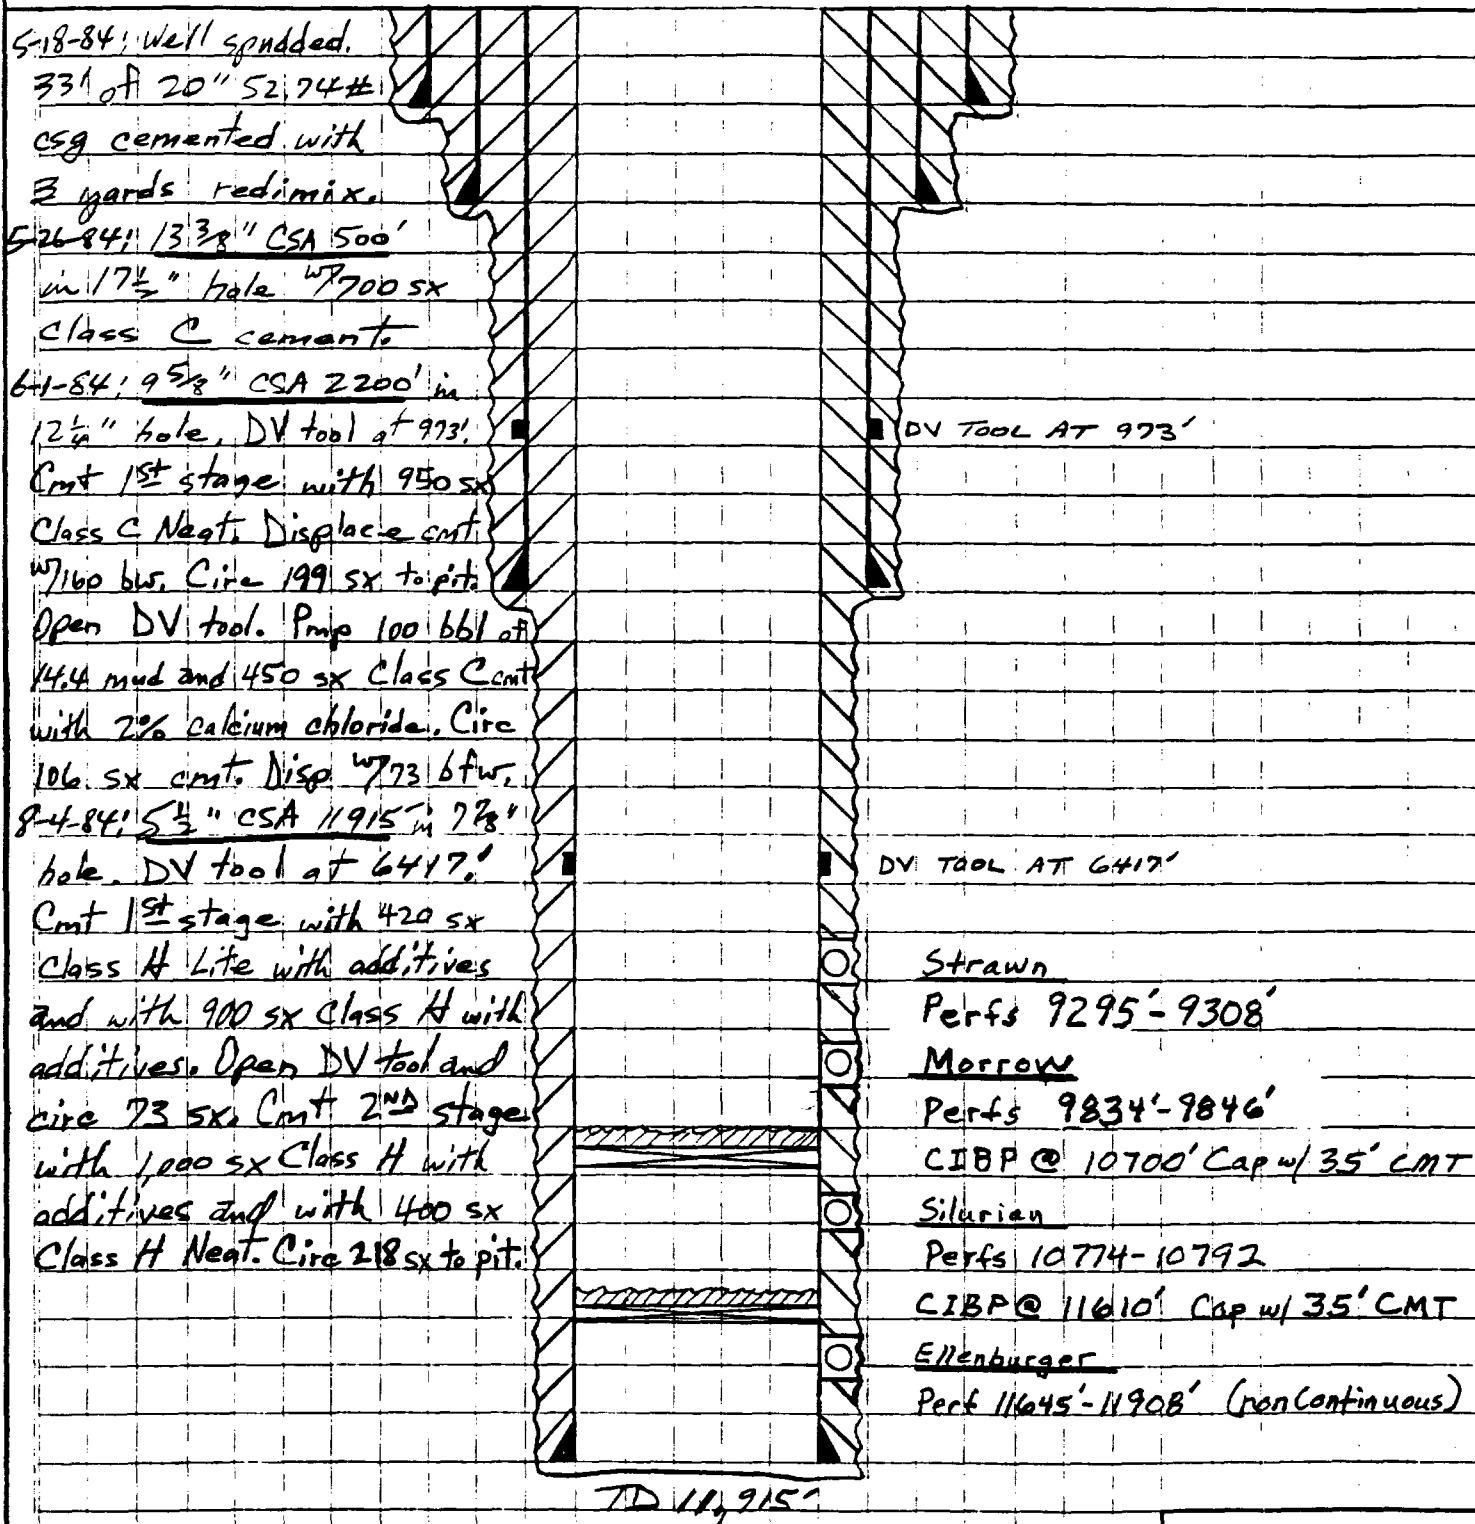 5-18-84; Well spudded.
33' of 20" 52.74#
csg cemented with
3 yards redimix.
5-26-84; 13 3/8" CSA 500'
in 17 1/2" hole w/700 sx
Class C cement.
6-1-84; 9 5/8" CSA 2200' in
12 1/4" hole. DV tool at 973'.
Cmt 1st stage with 950 sx
Class C Neat. Displace cmt
w/160 bw. Circ 199 sx to pit.
Open DV tool. Pmp 100 bbl of
14.4 mud and 450 sx Class C cmt
with 2% calcium chloride. Circ
106 sx cmt. Disp w/73 bfw.
8-4-84; 5 1/2" CSA 11915' in 7 7/8"
hole. DV tool at 6417'.
Cmt 1st stage with 420 sx
Class H Lite with additives
and with 900 sx Class H with
additives. Open DV tool and
circ 73 sx. Cmt 2ND stage
with 1,000 sx Class H with
additives and with 400 sx
Class H Neat. Circ 218 sx to pit.
DV TOOL AT 973'
DV TOOL AT 6417'
Strawn
Perfs 9295'-9308'
Morrow
Perfs 9834'-9846'
CIBP @ 10700' Cap w/ 35' CMT
Silurian
Perfs 10774-10792
CIBP @ 11610' Cap w/ 35' CMT
Ellenburger
Perf 11645'-11908' (non Continuous)
TD 11,915'